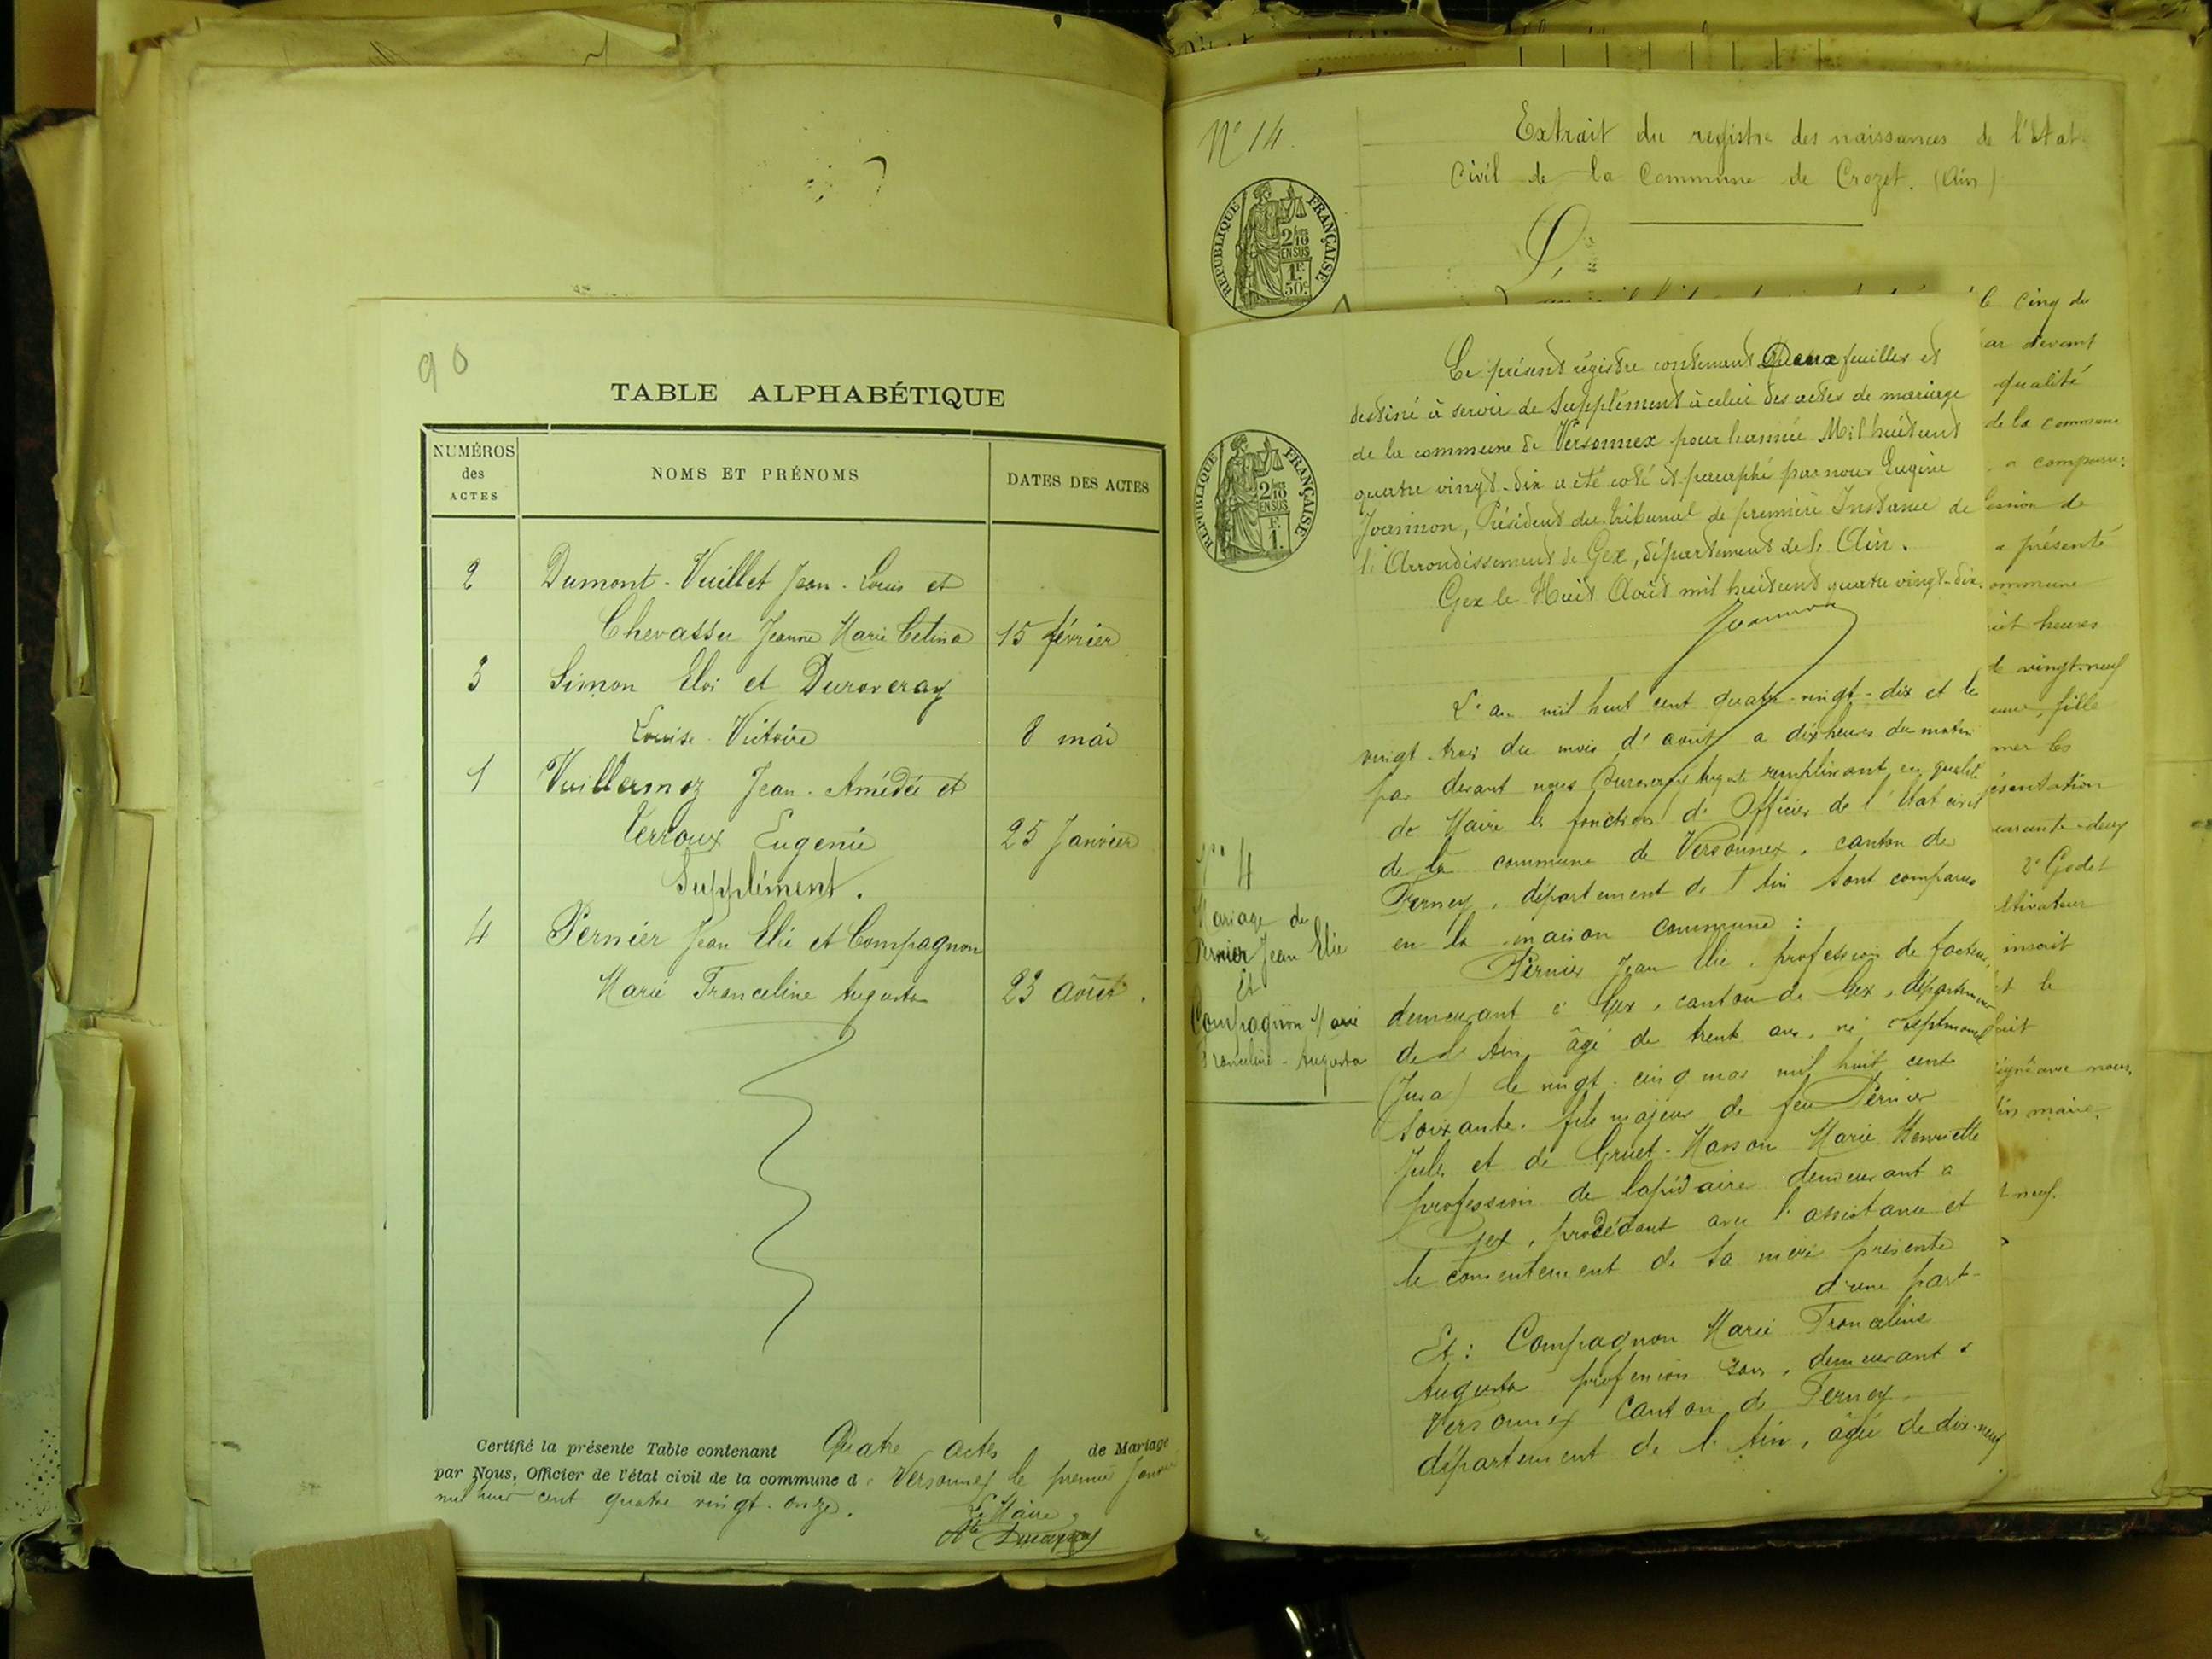 90
TABLE ALPHABÉTIQUE
NUMÉROS
des
ACTES
NOMS ET PRÉNOMS
DATES DES ACTES
2 Dumont-Vuillet Jean-Louis et
Chevassu Jeanne Marie Celina 15 février
3 Simon Eloi et Duroveray
Louise Victoire 8 mai
1 Vuillermoz Jean-Amédée et
Verroux Eugenie 25 Janvier
Supplément.
4 Pernier Jean Elie et Compagnon
Marie Franceline Augusta 23 août.
Certifié la présente Table contenant Quatre actes de Mariage
par Nous, Officier de l'état civil de la commune d Versonnex le premier Janvier
mil huit cent quatre vingt-onze.
Le Maire
N° 14.
Extrait du registre des naissances de l'état
Civil de la Commune de Crozet. (Ain)
RÉPUBLIQUE FRANÇAISE
2/10
EN SUS
1F
50c
le cinq du
par devant
qualité
de la commune
a comparu:
de
a présenté
commune
huit heures
vingt-neuf
fille
les
présentation
quarante-deux
2° Godet
cultivateur
inscrit
et le
fait
signé avec nous,
maire.
neuf.
RÉPUBLIQUE FRANÇAISE
2/10
EN SUS
F.
1.
Le présent régistre contenant Deux feuilles et
destiné à servir de Supplément à celui des actes de mariage
de la commune de Versonnex pour l'année Mil huit cent
quatre vingt-dix a été coté et paraphé par nous Eugène
Joannon, Président du tribunal de première Instance de
l'Arrondissement de Gex, département de l'Ain.
Gex le Huit Août mil huit cent quatre vingt-dix.
Joannon
L'an mil huit cent quatre-vingt-dix et le
vingt-trois du mois d'août a dix heures du matin
par devant nous Duroveray Auguste remplissant en qualité
de Maire les fonctions d'Officier de l'Etat civil
de la commune de Versonnex, canton de
Ferney, département de l'Ain sont comparus
en la maison commune:
Pernier Jean Elie, profession de facteur,
demeurant à Gex, canton de Gex, département
de l'Ain, âgé de trente ans, né à Septmoncel
(Jura) le vingt-cinq mars mil huit cent
soixante. fils majeur de feu Pernier
Jules et de Gruet-Masson Marie Henriette
profession de lapidaire demeurant a
Gex, procédant avec l'assistance et
le consentement de sa mère présente
d'une part-
Et: Compagnon Marie Franceline
Augusta profession sans, demeurant à
Versonnex canton de Ferney
département de l'Ain, âgée de dix-neuf
N° 4
Mariage de
Pernier Jean Elie
Et
Compagnon Marie
Franceline-Augusta